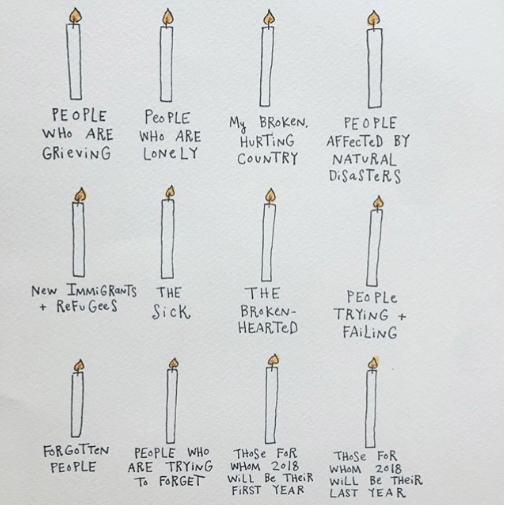 PEOPLE
WHO ARE
GRieviNG
PeoPLE
WHO ARE
LONELY
My BROKEN,
HURTiNG
COUNTRY
PEOPLE
AFFecTeD BY
NATURAL
DiSaSTeRS
New IMMiGRaNTS
+ ReFuGeeS
THE
SiCK
THE
BROKeN-
HEARTeD
PEOPLe
TRYiNG +
FAiLiNG
FORGOTTEN
PEOPLE
PEOPLE WHO
ARE TRYiNG
To FORGeT
THoSe FoR
WHOM 2018
WiLL Be THeiR
FiRST YEAR
THoSe FoR
WHOM 2018
WiLL Be THeiR
LAST YEAR